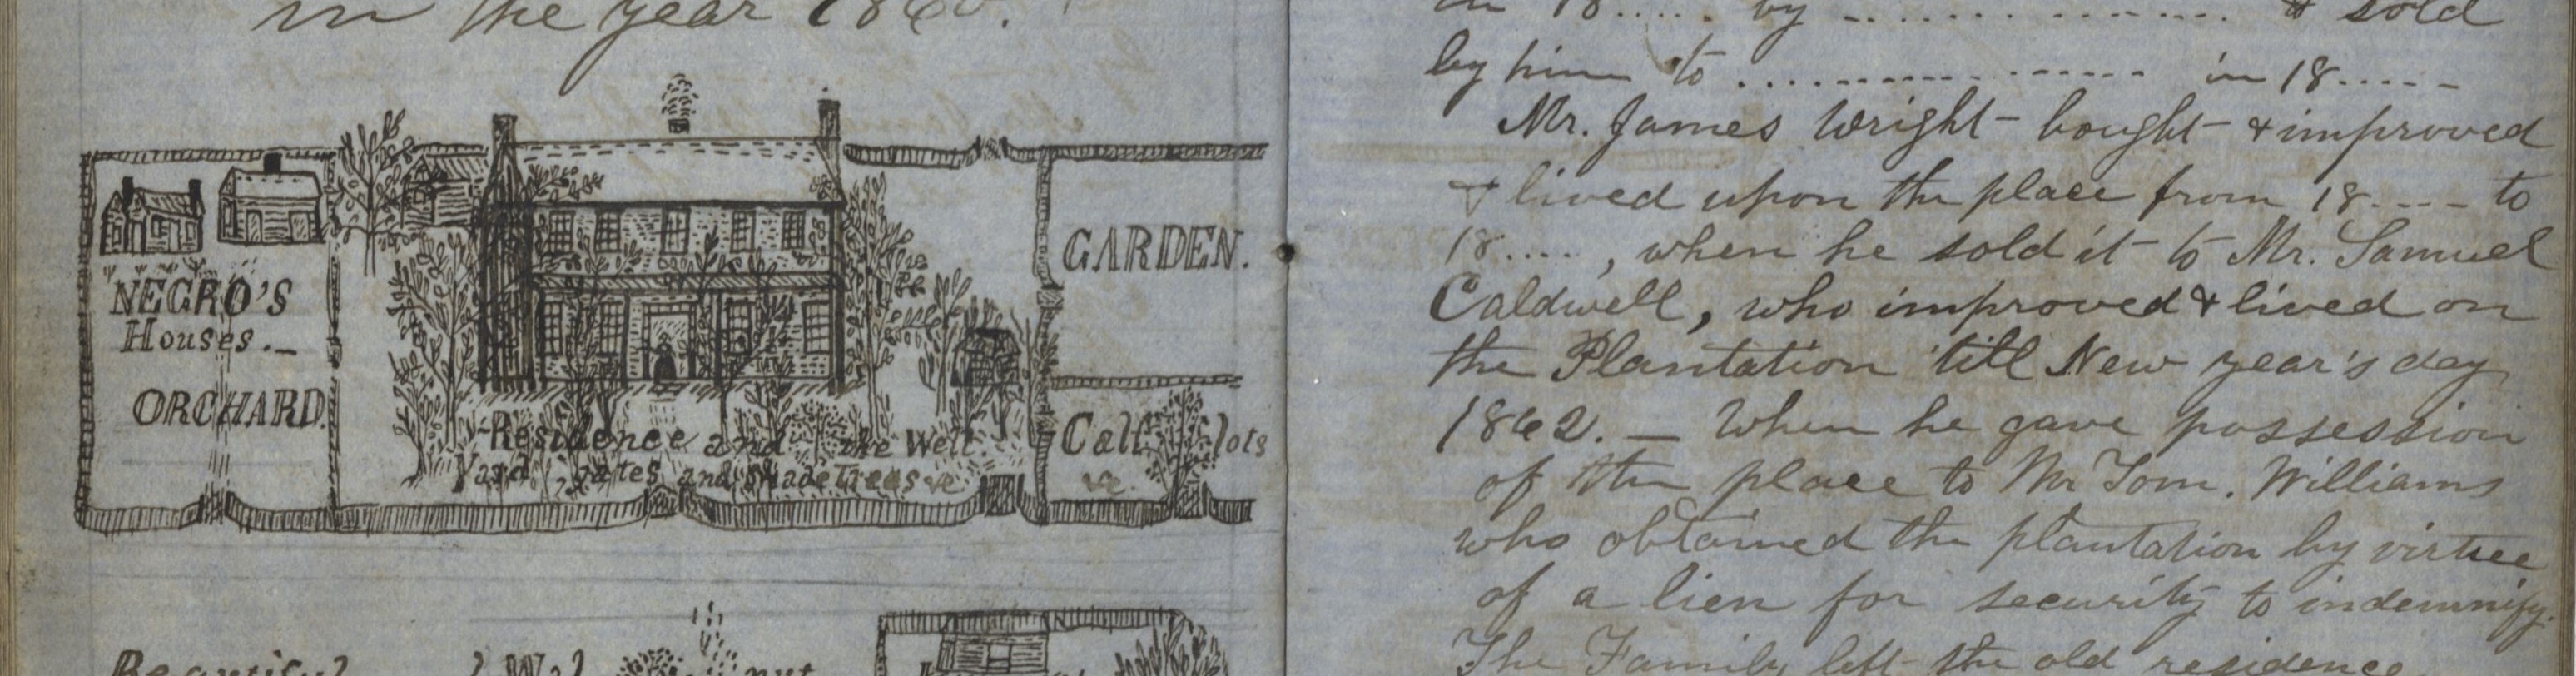 in the year 1860.
NEGRO'S
Houses._
ORCHARD.
Residence and the Well.
Yard, gates and shade Trees &c
GARDEN.
Calf lots
&c.
Beautiful Wal nut
in 18..... by .............. & sold
by him to ................. in 18.....
Mr. James Wright bought & improved
& lived upon the place from 18.... to
18...., when he sold it to Mr. Samuel
Caldwell, who improved & lived on
the Plantation 'till New year's day
1862. — When he gave possession
of the place to Mr Tom. Williams
who obtained the plantation by virtue
of a lien for security to indemnify.
The Family left the old residence